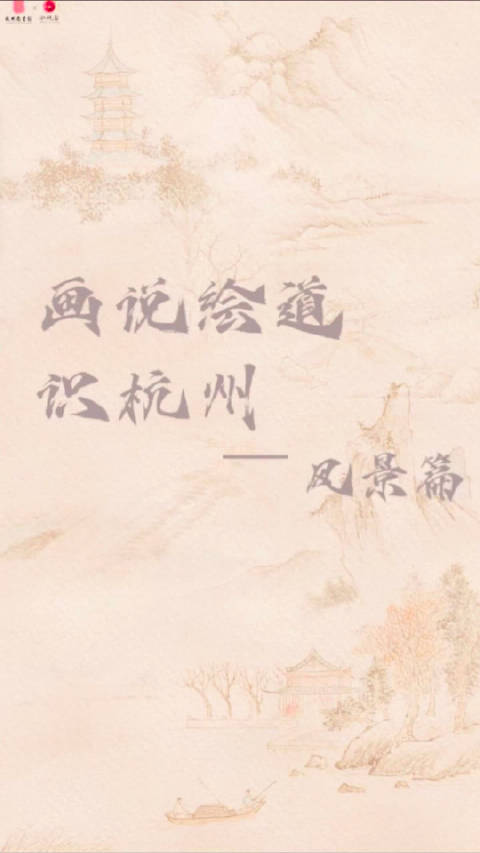 画说绘道
识杭州
——风景篇